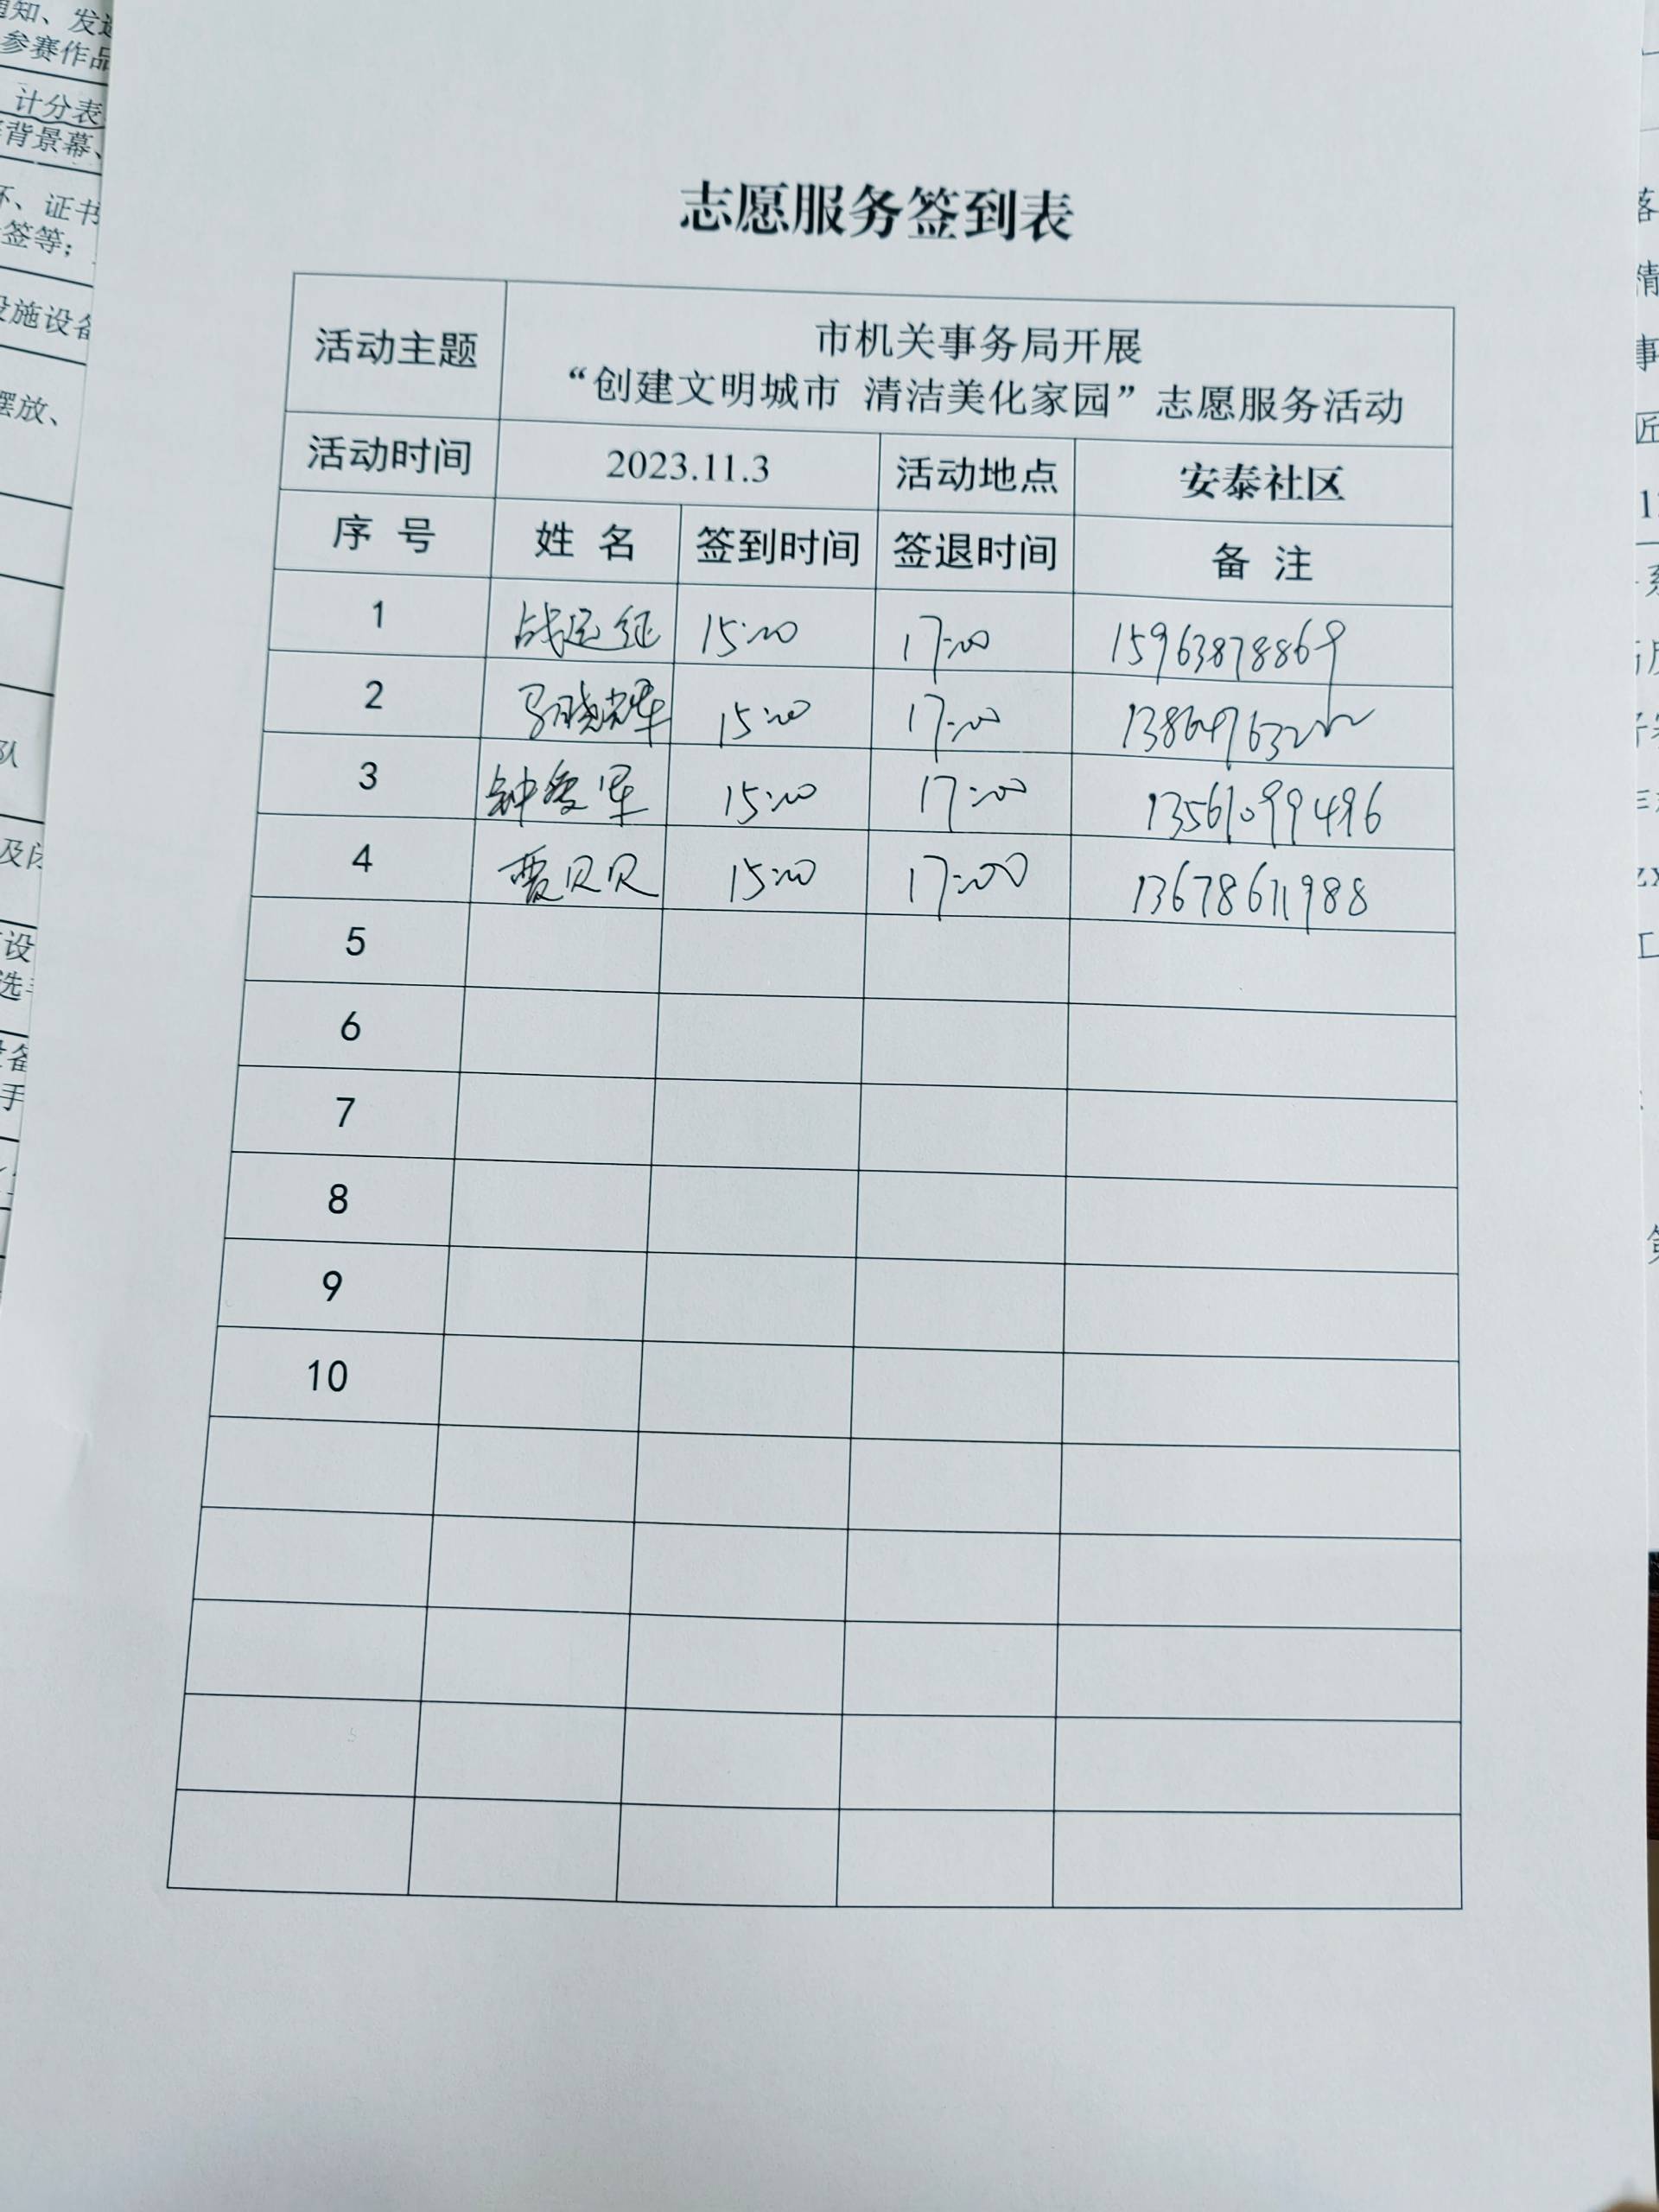 志愿服务签到表
活动主题
市机关事务局开展
“创建文明城市 清洁美化家园”志愿服务活动
活动时间 2023.11.3 活动地点 安泰社区
序 号 姓 名 签到时间 签退时间 备 注
1 战运征 15:00 17:00 15963878869
2 马晓辉 15:00 17:00
3 钟爱军 15:00 17:00 13561099496
4 贾贝贝 15:00 17:00 13678611988
5
6
7
8
9
10
通知、发
参赛作品
计分表
背景幕、
、证书
签等；
设施设备
摆放、
队
及闭
设
选手
设备
手
落
清
事
匠